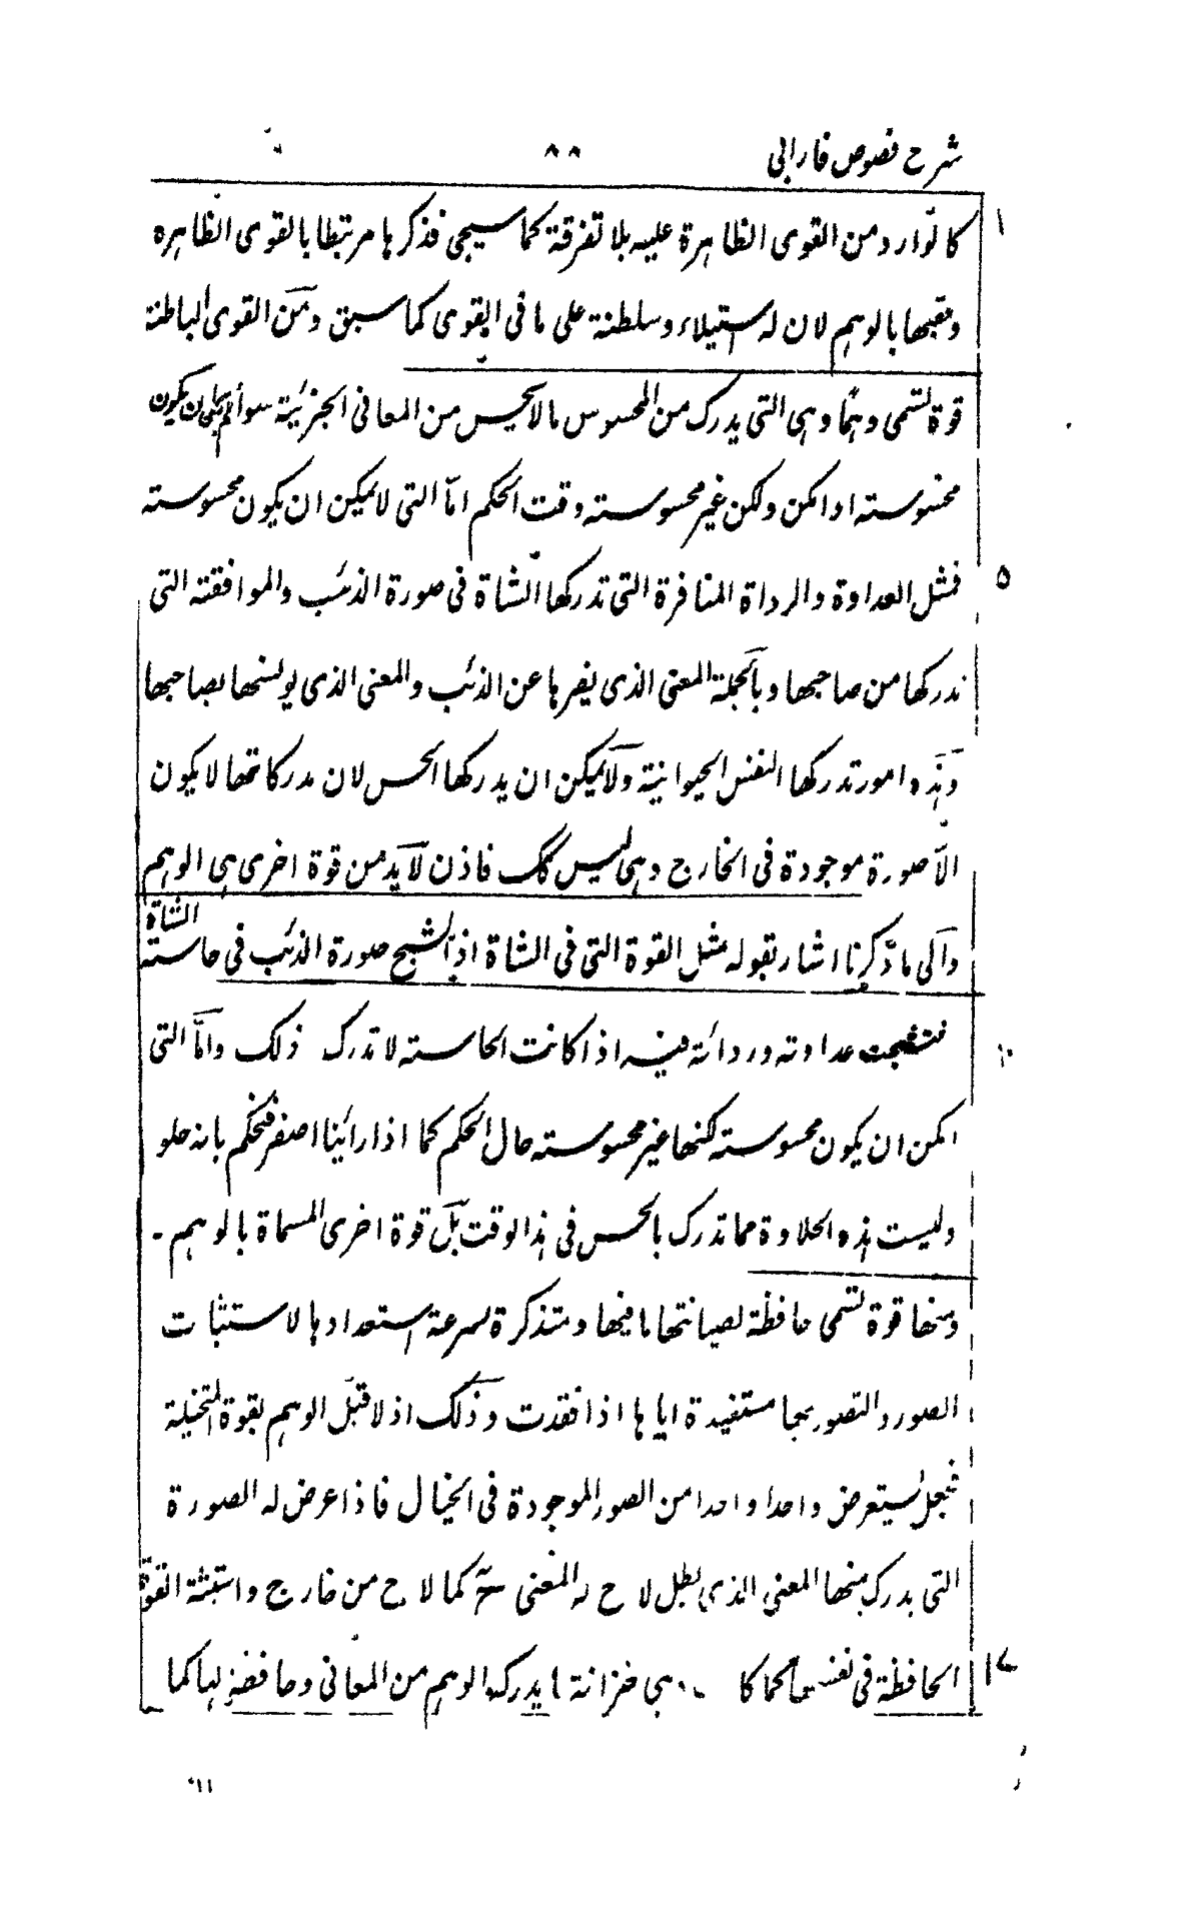 شرح فصوص فارابی ۸۸
۱ كالوارد من القوى الظاهرة عليه بلا تفرقة كما سيجى فذكرها مرتبطا بالقوى الظاهره
وتعقبها بالوهم لان له استيلاء وسلطنة على ما فى القوى كما سبق ومن القوى الباطنة
قوة تسمى وهما وهى التى يدرك من المحسوس مالا يحس من المعانى الجزئية سواء لم يمكن ان يكون
محسوسة او امكن ولكن غير محسوسة وقت الحكم اما التى لا يمكن ان يكون محسوسة
۵ فمثل العداوة والرداة المنافرة التى تدركها الشاة فى صورة الذئب والموافقة التى
تدركها من صاحبها وبالجملة المعنى الذى ينفرها عن الذئب والمعنى الذى يونسها بصاحبها
وهذه امور تدركها النفس الحيوانية ولا يمكن ان يدركها الحس لان مدركاتها لا يكون
الا صورة موجودة فى الخارج وهى ليس كك فاذن لا بد من قوة اخرى هى الوهم
والى ما ذكرنا اشار بقوله مثل القوة التى فى الشاة اذا تشبح صورة الذئب فى حاسة الشاة
۱۰ فتشبحت عداوته وردائة فيه اذا كانت الحاسة لا تدرك ذلك واما التى
امكن ان يكون محسوسة لكنها غير محسوسة حال الحكم كما اذا راينا اصفر فنحكم بانه حلو
وليست هذه الحلاوة مما تدرك بالحس فى هذا الوقت بل قوة اخرى المسماة بالوهم -
ومنها قوة تسمى حافظة لصيانتها ما فيها ومتذكرة لسرعة استعدادها لاستثبات
الصور والتصور بها مستفيدة اياها اذا فقدت وذلك اذا اقبل الوهم بقوة المتخيلة
فجعل يستعرض واحدا واحدا من الصور الموجودة فى الخيال فاذا عرض له الصورة
التى يدرك منها المعنى الذى بطل لاح له المعنى ح كما لاح من خارج واستثبته القوة
۱۷ الحافظة فى نفسها كما كا هى خزانة ما يدركه الوهم من المعانى وحافظة لها كما